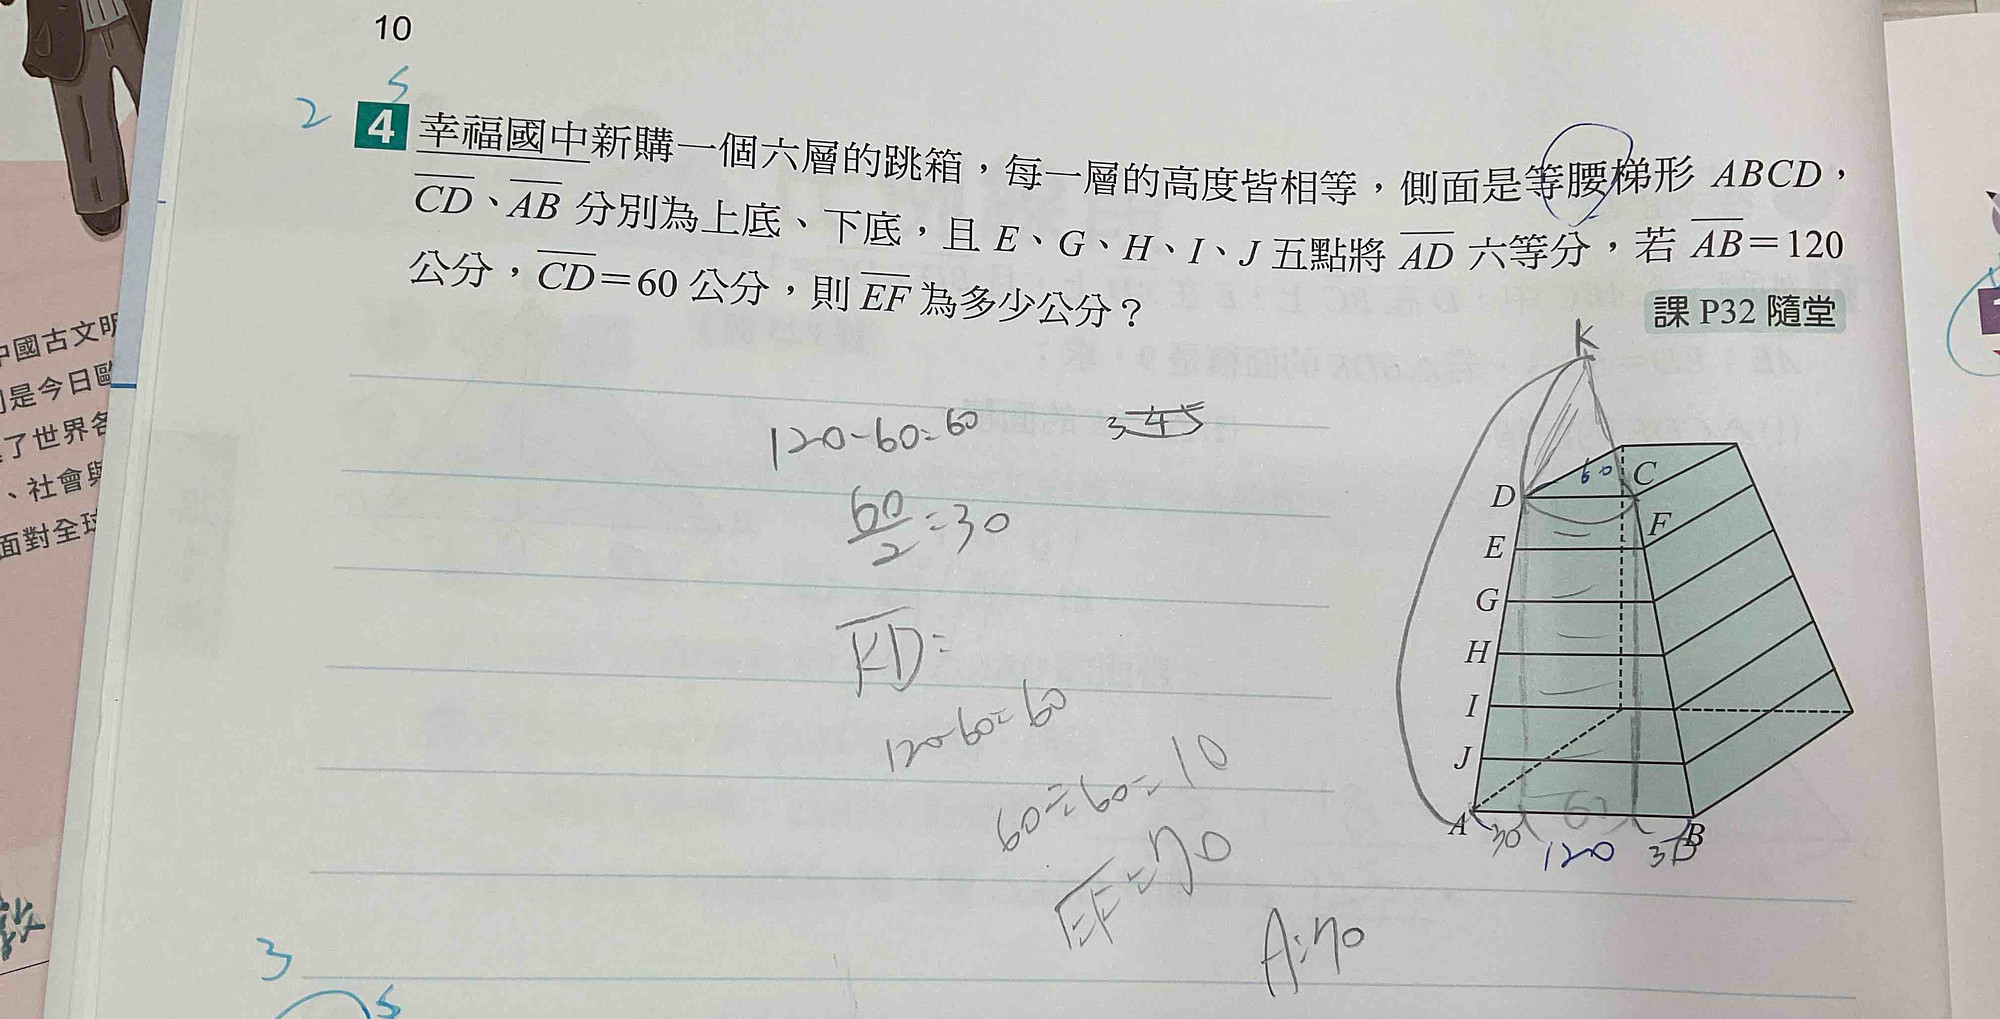 10
2
5
4 幸福國中新購一個六層的跳箱，每一層的高度皆相等，側面是等腰梯形 ABCD，
CD、AB 分別為上底、下底，且 E、G、H、I、J 五點將 AD 六等分，若 AB＝120
公分，CD＝60 公分，則 EF 為多少公分？
課 P32 隨堂
120-60=60
3 4 5
60/2=30
KD=
120-60=60
60÷60=10
EF=70
A:70
K
60
D
C
E
F
G
H
I
J
A
B
30
60
30
120
中國古文明
是今日歐
了世界各
、社會與
面對全球
3
5